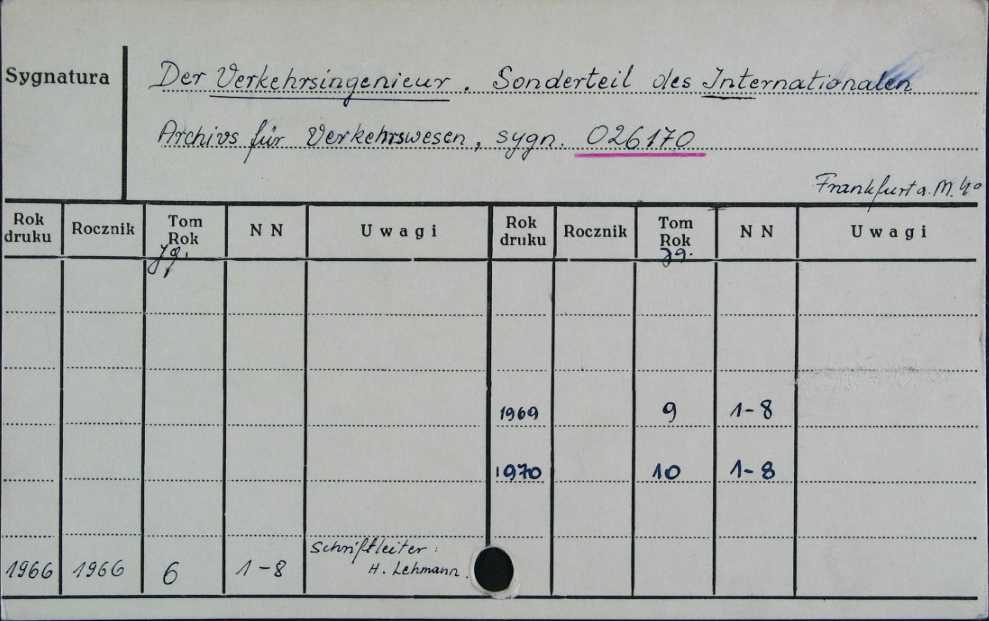 Sygnatura
Der Verkehrsingenieur. Sonderteil des Internationalen
Archivs für Verkehrswesen, sygn. 026170
Frankfurt a. M. 4°
Rok druku Rocznik Tom Rok Jg. N N Uwagi Rok druku Rocznik Tom Rok Jg. N N Uwagi
1969 9 1-8
1970 10 1-8
1966 1966 6 1-8 Schriftleiter: H. Lehmann.